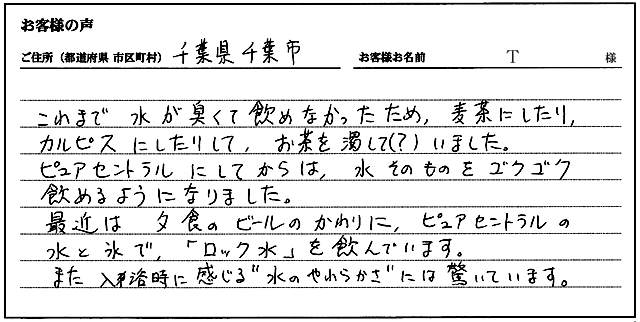 お客様の声
ご住所（都道府県 市区町村） 千葉県千葉市 お客様お名前 T 様
これまで 水が臭くて飲めなかったため，麦茶にしたり，
カルピスにしたりして，お茶を濁して(?)いました。
ピュアセントラルにしてからは，水そのものをゴクゴク
飲めるようになりました。
最近は 夕食のビールのかわりに，ピュアセントラルの
水と氷で，「ロック水」を飲んでいます。
また 入浴時に感じる"水のやわらかさ"には驚いています。